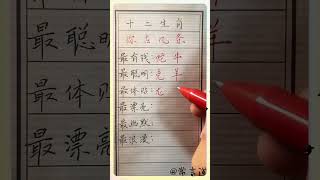 十二生肖
最有钱:蛇牛
最聪明:兔羊
最体贴:龙
最漂亮:
最幽默:
最浪漫:
最聪明
最体贴
最漂亮